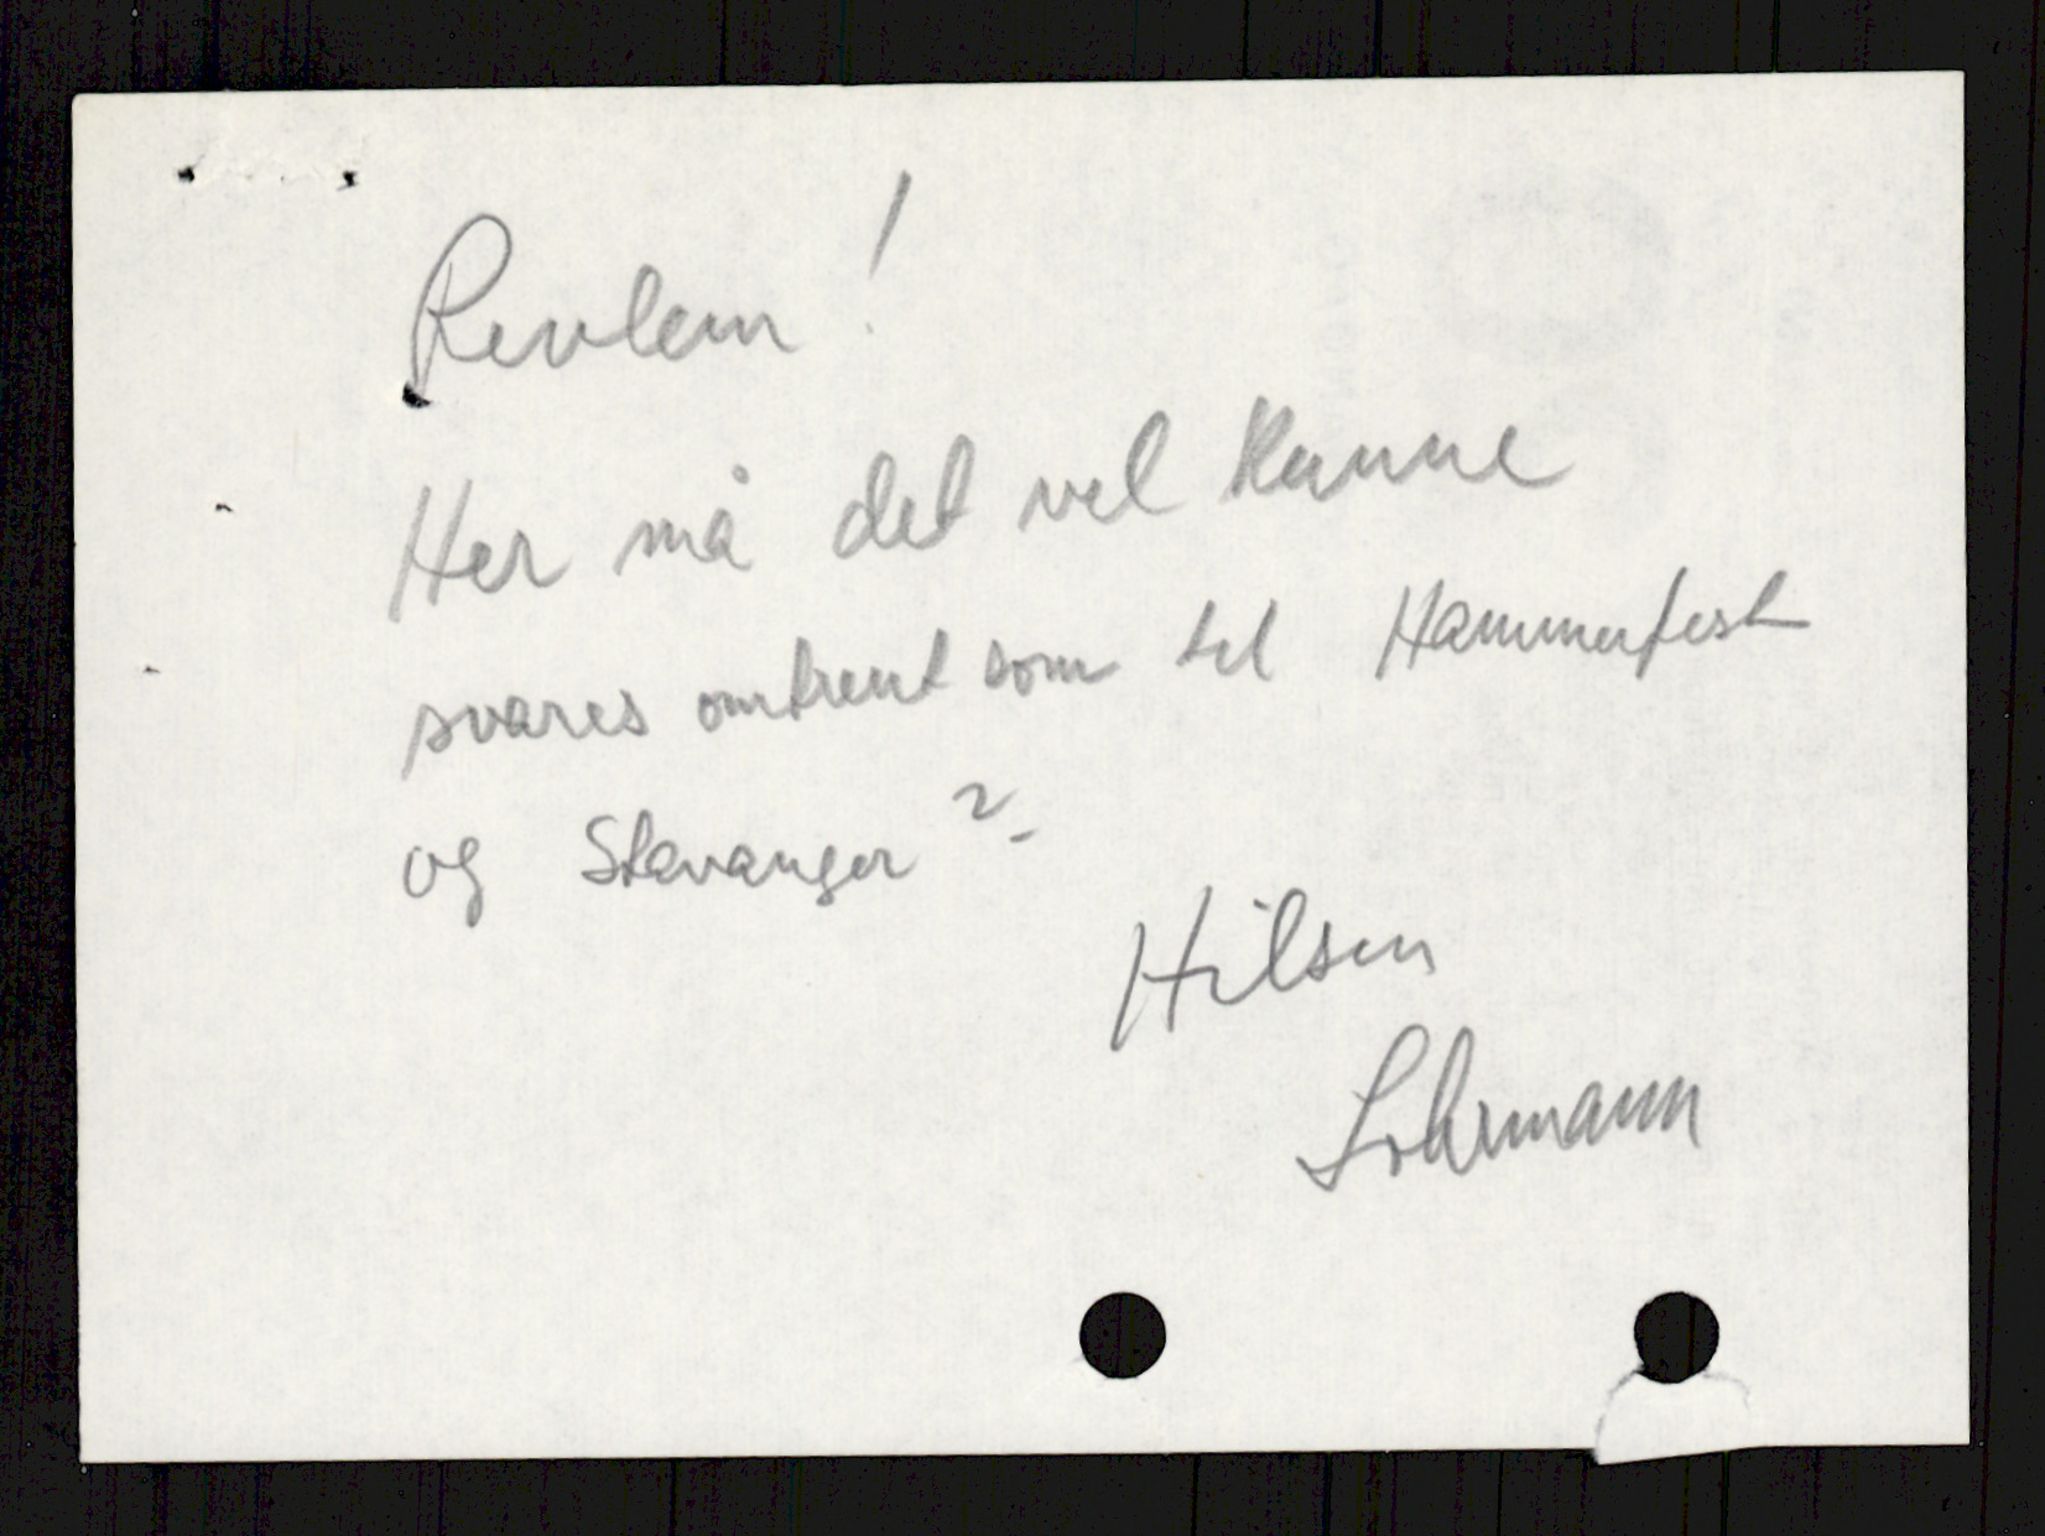 Revlem!
Her må det vel kunne
svares omtrent som til Hammerfest
og Stavanger?
Hilsen
Lohrmann